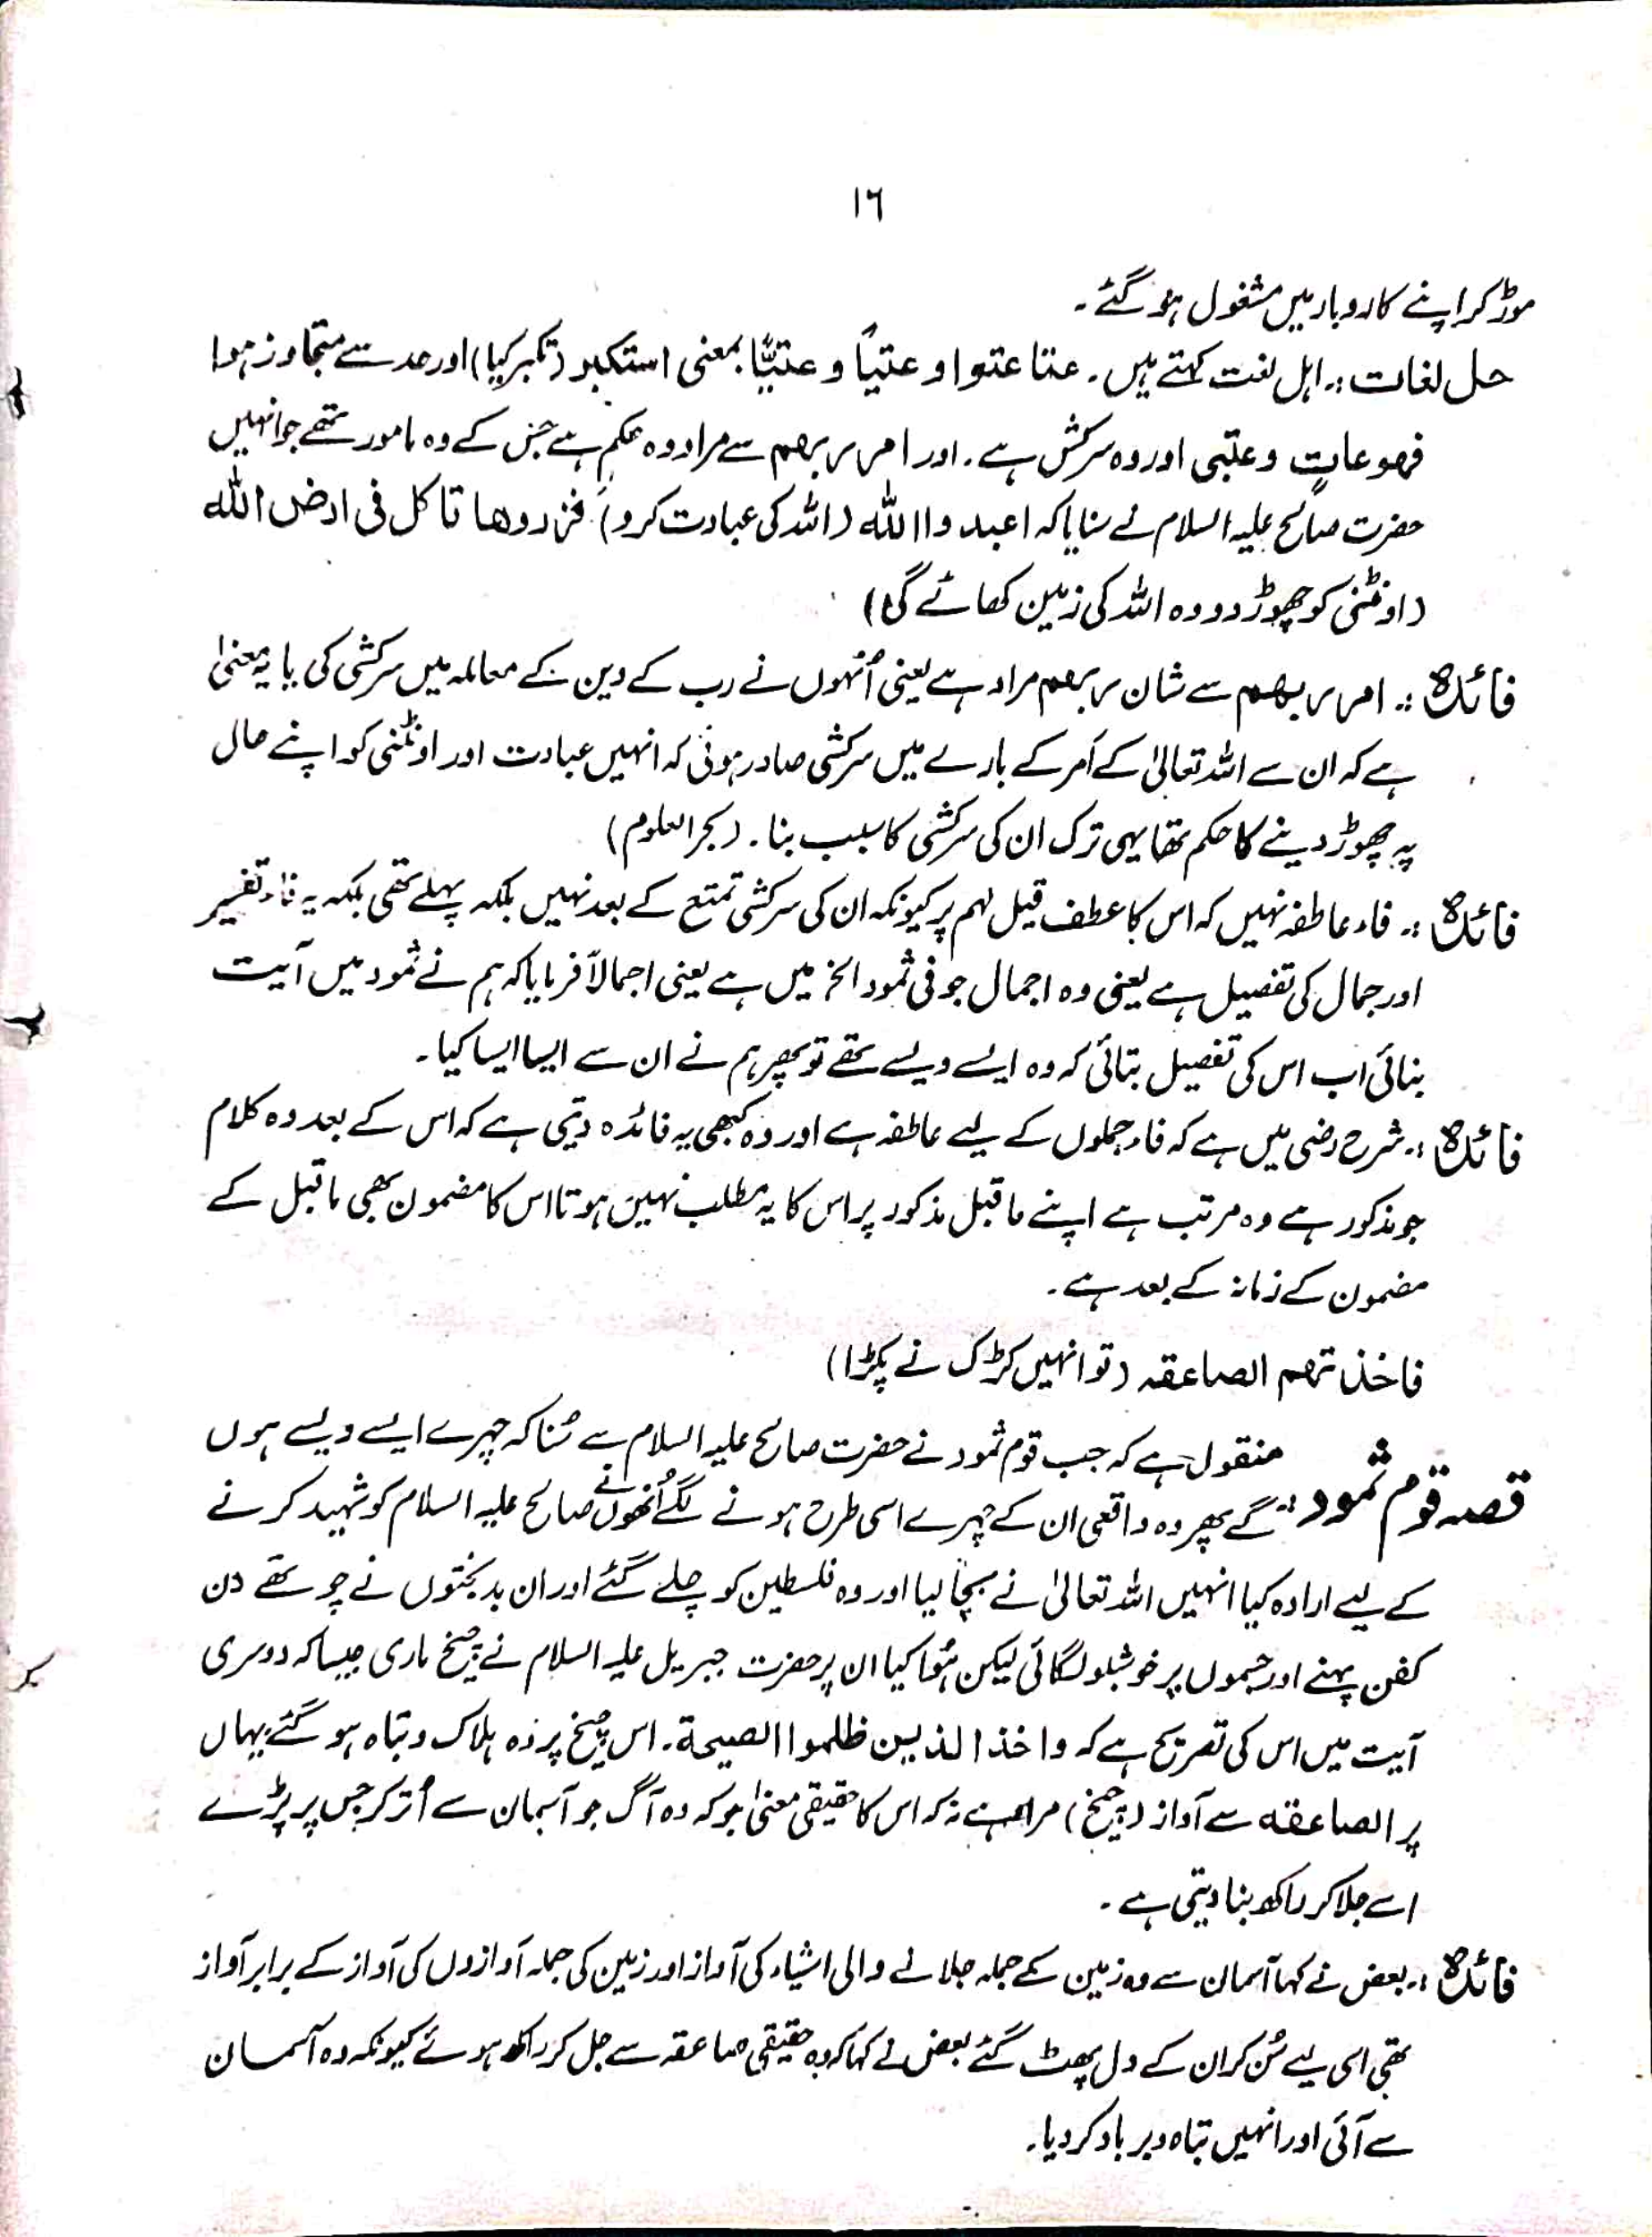 ۱۶
موڑ کر اپنے کاروبار میں مشغول ہو گئے۔
حل لغات :۔ اہل لغت کہتے ہیں۔ عتا عتوا و عتیاً و عتیًّا بمعنی استکبر (تکبر کیا) اور حد سے متجاوز ہوا
فھو عاتٍ و عتبی اور وہ سرکش ہے۔ اور امر ربھم سے مراد وہ حکم ہے جن کے وہ مامور تھے جو انہیں
حضرت صالح علیہ السلام نے سنایا کہ اعبدوا اللہ (اللہ کی عبادت کرو) فذروھا تاکل فی ارض اللہ
(اونٹنی کو چھوڑ دو وہ اللہ کی زمین کھائے گی)
فائدہ :۔ امر ربھم سے شان ربھم مراد ہے یعنی اُنہوں نے رب کے دین کے معاملہ میں سرکشی کی یا یہ معنیٰ
ہے کہ ان سے اللہ تعالیٰ کے اَمر کے بارے میں سرکشی صادر ہوئی کہ انہیں عبادت اور اونٹنی کو اپنے حال
پہ چھوڑ دینے کا حکم تھا یہی ترک ان کی سرکشی کا سبب بنا۔ (بحر العلوم)
فائدہ :۔ فاء عاطفہ نہیں کہ اس کا عطف قیل لہم پر کیونکہ ان کی سرکشی تمتع کے بعد نہیں بلکہ پہلے تھی بلکہ یہ فاء تفسیر
اور جمال کی تفصیل ہے یعنی وہ اجمال جو فی ثمود الخ میں ہے یعنی اجمالاً فرمایا کہ ہم نے ثمود میں آیت
بنائی اب اس کی تفصیل بتائی کہ وہ ایسے ویسے تھے تو پھر ہم نے ان سے ایسا ایسا کیا۔
فائدہ :۔ شرح رضی میں ہے کہ فاء جملوں کے لیے عاطفہ ہے اور وہ کبھی یہ فائدہ دیتی ہے کہ اس کے بعد وہ کلام
جو مذکور ہے وہ مرتب ہے اپنے ماقبل مذکور پر اس کا یہ مطلب نہیں ہوتا اس کا مضمون بھی ماقبل کے
مضمون کے زمانہ کے بعد ہے۔
فاخذتہم الصاعقہ (تو انہیں کڑک نے پکڑا)
قصہ قوم ثمود :۔ منقول ہے کہ جب قوم ثمود نے حضرت صالح علیہ السلام سے سُنا کہ چہرے ایسے ویسے ہوں
گے پھر وہ واقعی ان کے چہرے اسی طرح ہونے لگے اُنھوں نے صالح علیہ السلام کو شہید کرنے
کے لیے ارادہ کیا انہیں اللہ تعالیٰ نے بچا لیا اور وہ فلسطین کو چلے گئے اور ان بدبختوں نے چوتھے دن
کفن پہنے اور جسموں پر خوشبو لگائی لیکن ہُوا کیا ان پر حضرت جبریل علیہ السلام نے چیخ ماری جیسا کہ دوسری
آیت میں اس کی تصریح ہے کہ واخذ الذین ظلموا الصیحة۔ اس چیخ پر وہ ہلاک و تباہ ہو گئے یہاں
پر الصاعقه سے آواز (چیخ) مراد ہے نہ کہ اس کا حقیقی معنیٰ ہو کہ وہ آگ جو آسمان سے اُتر کر جس پر پڑے
اسے جلا کر راکھ بنا دیتی ہے۔
فائدہ :۔ بعض نے کہا آسمان سے وہ زمین کے جملہ جلانے والی اشیاء کی آواز اور زمین کی جملہ آوازوں کی آواز کے برابر آواز
تھی اسی لیے سُن کر ان کے دل پھٹ گئے بعض نے کہا کہ وہ حقیقی صاعقہ سے جل کر راکھ ہوئے کیونکہ وہ آسمان
سے آئی اور انہیں تباہ و برباد کر دیا۔